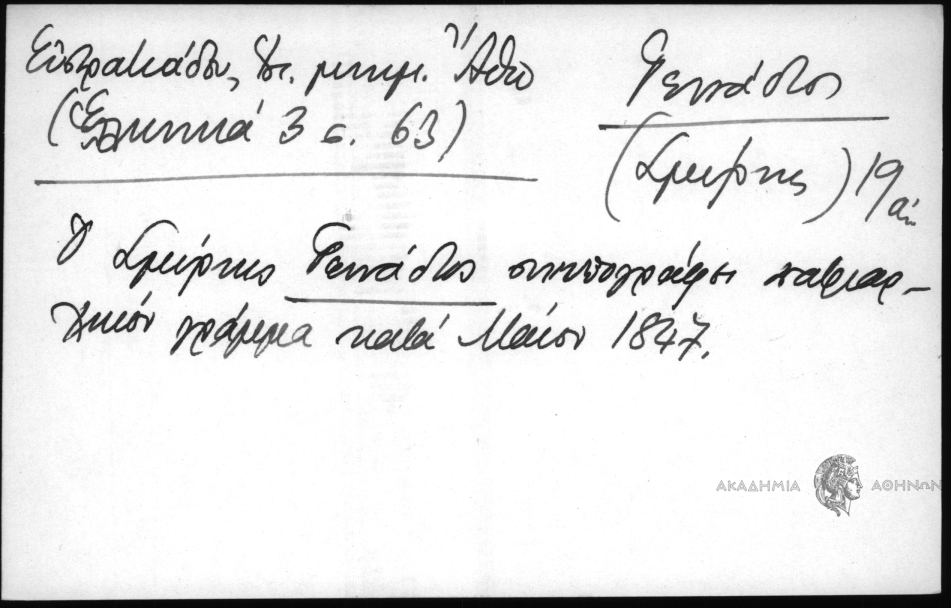 Εὐστρατιάδου, Ἱστ. μνημ. Ἄθω
(Ἑλληνικά 3 σ. 63)
Γεννάδιος
(Σμύρνης) 19 αἰ.
Ὁ Σμύρνης Γεννάδιος συνυπογράφει πατριαρ-
χικόν γράμμα κατά Μάϊον 1847.
ΑΚΑΔΗΜΙΑ ΑΘΗΝΩΝ